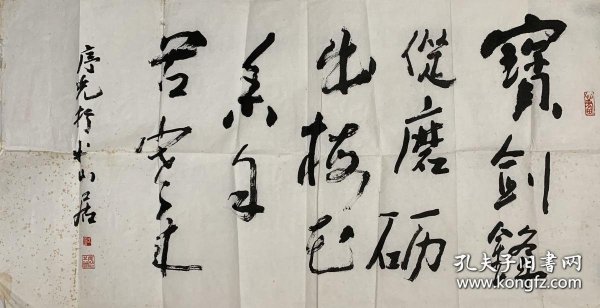 寶劍鋒
從磨礪
出梅花
香自
苦寒來
序先於木山居
孔夫子旧书网
www.kongfz.com